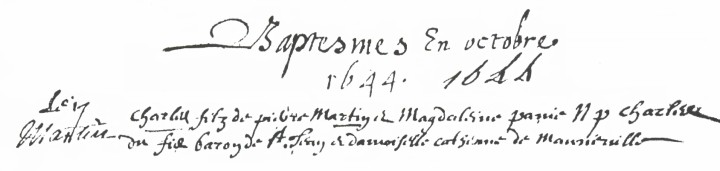 Baptesmes En octobre
1644. 1644
Le
Martin
Charles filz de pierre Martin & Magdaleine parrie N p Charles
du baron de & damoiselle catherine de Manneville